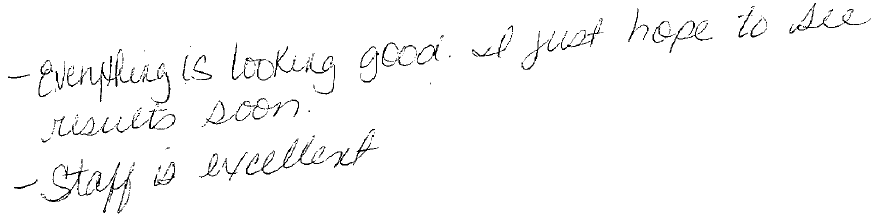 - Everything is looking good. I just hope to see
results soon.
- Staff is excellent